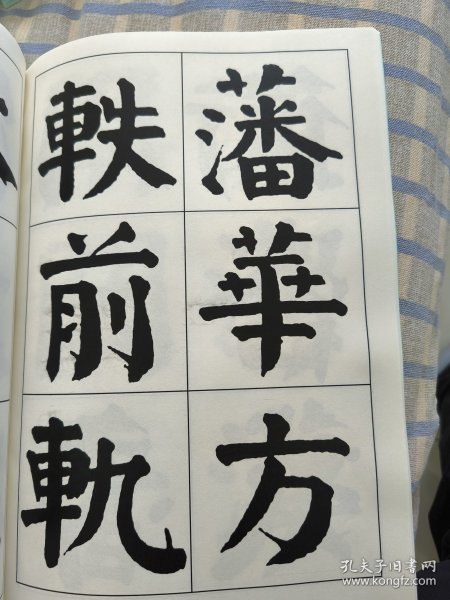 藩華方
軼前軌
孔夫子旧书网
www.kongfz.com